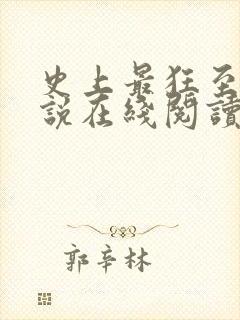 史上最狂至
說在綫閱讀
郭辛林